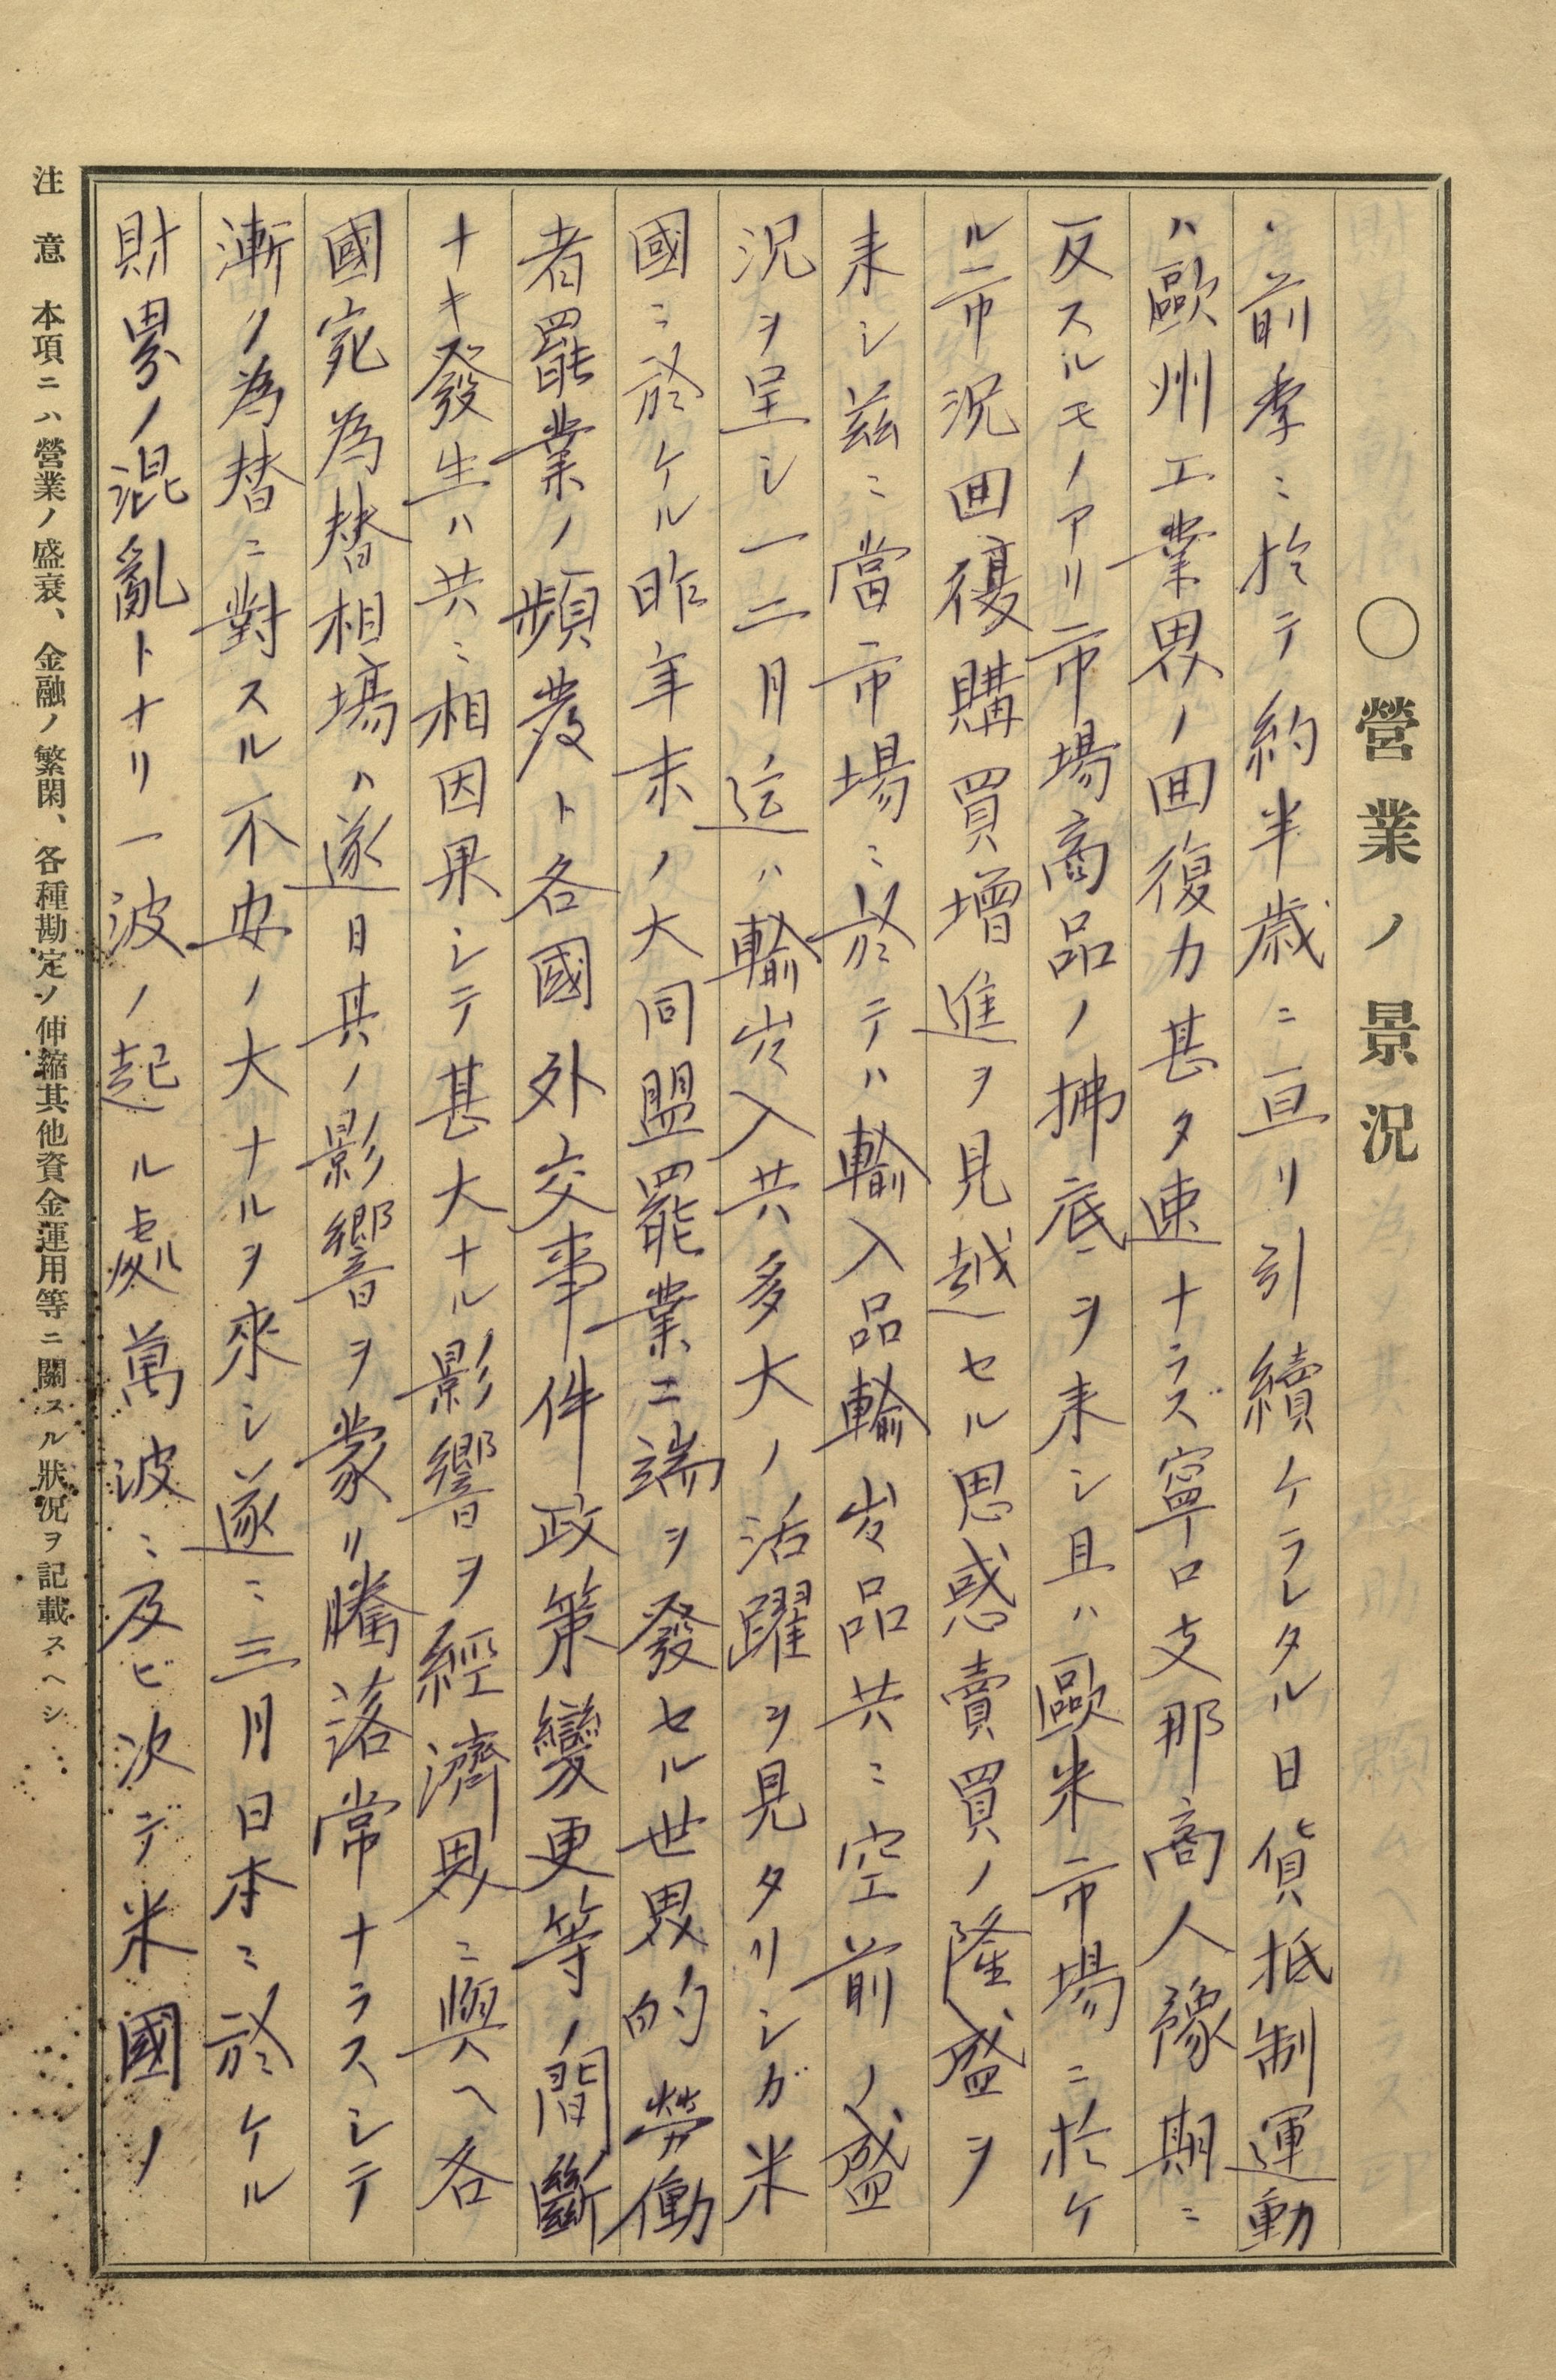 ○營業ノ景況
、前季ニ於テ約半歳ニ亘リ引續ケラレタル日貨抵制運動
ハ歐州工業界ノ囬復力甚タ速ナラズ寧ロ支那商人豫期ニ
反スルモノアリ市場商品ノ拂底ヲ来シ且ハ歐米市場ニ於ケ
ル市況囬復購買増進ヲ見越セル思惑賣買ノ隆盛ヲ
来シ茲ニ當市場ニ於テハ輸入品輸出品共ニ空前ノ盛
況ヲ呈シ一二月迄ハ輸出入共多大ノ活躍ヲ見タリシガ米
國ニ於ケル昨年末ノ大同盟罷業ニ端ヲ發セル世界的勞働
者罷業ノ頻發ト各國外交事件政策變更等ノ間斷
ナキ發生ハ共ニ相因果シテ甚大ナル影響ヲ經濟界ニ與ヘ各
國宛為替相場ハ遂日其ノ影響ヲ蒙リ騰落常ナラスシテ
漸ク為替ニ對スル不安ノ大ナルヲ來シ遂ニ三月日本ニ於ケル
財界ノ混亂トナリ一波ノ起ル處萬波ニ及ビ次デ米國ノ
注意 本項ニハ營業ノ盛衰、金融ノ繁閑、各種勘定ノ伸縮其他資金運用等ニ關スル狀況ヲ記載スヘシ